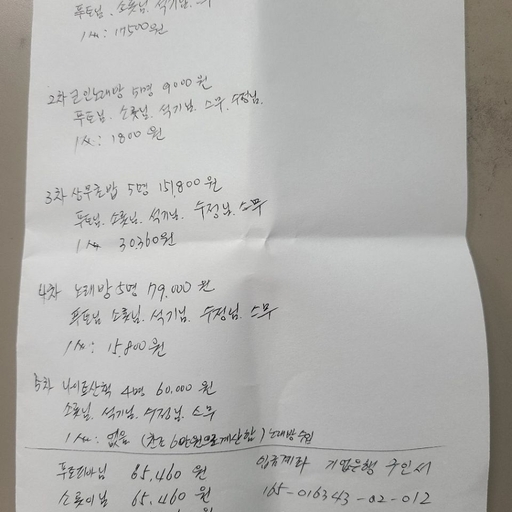 석기님.
1人: 17500원
2차 코인노래방 5명 9000원
푸도님. 소롯님. 석기님. 스무. 수정님.
1人: 1800원
3차 상무초밥 5명 151,800원
푸도님. 소롯님. 석기님. 수정님. 스무
1人 30,360원
4차 노래방 5명 79,000원
푸도님 소롯님. 석기님. 수정님. 스무
1人: 15,800원
5차 4명 60,000원
소롯님. 석기님. 수정님. 스무
1人: 없음 (찬조 6만원으로 계산함) 노래방
65,460원 입금계좌 기업은행 구인서
65,460원 165-016343-02-012
원